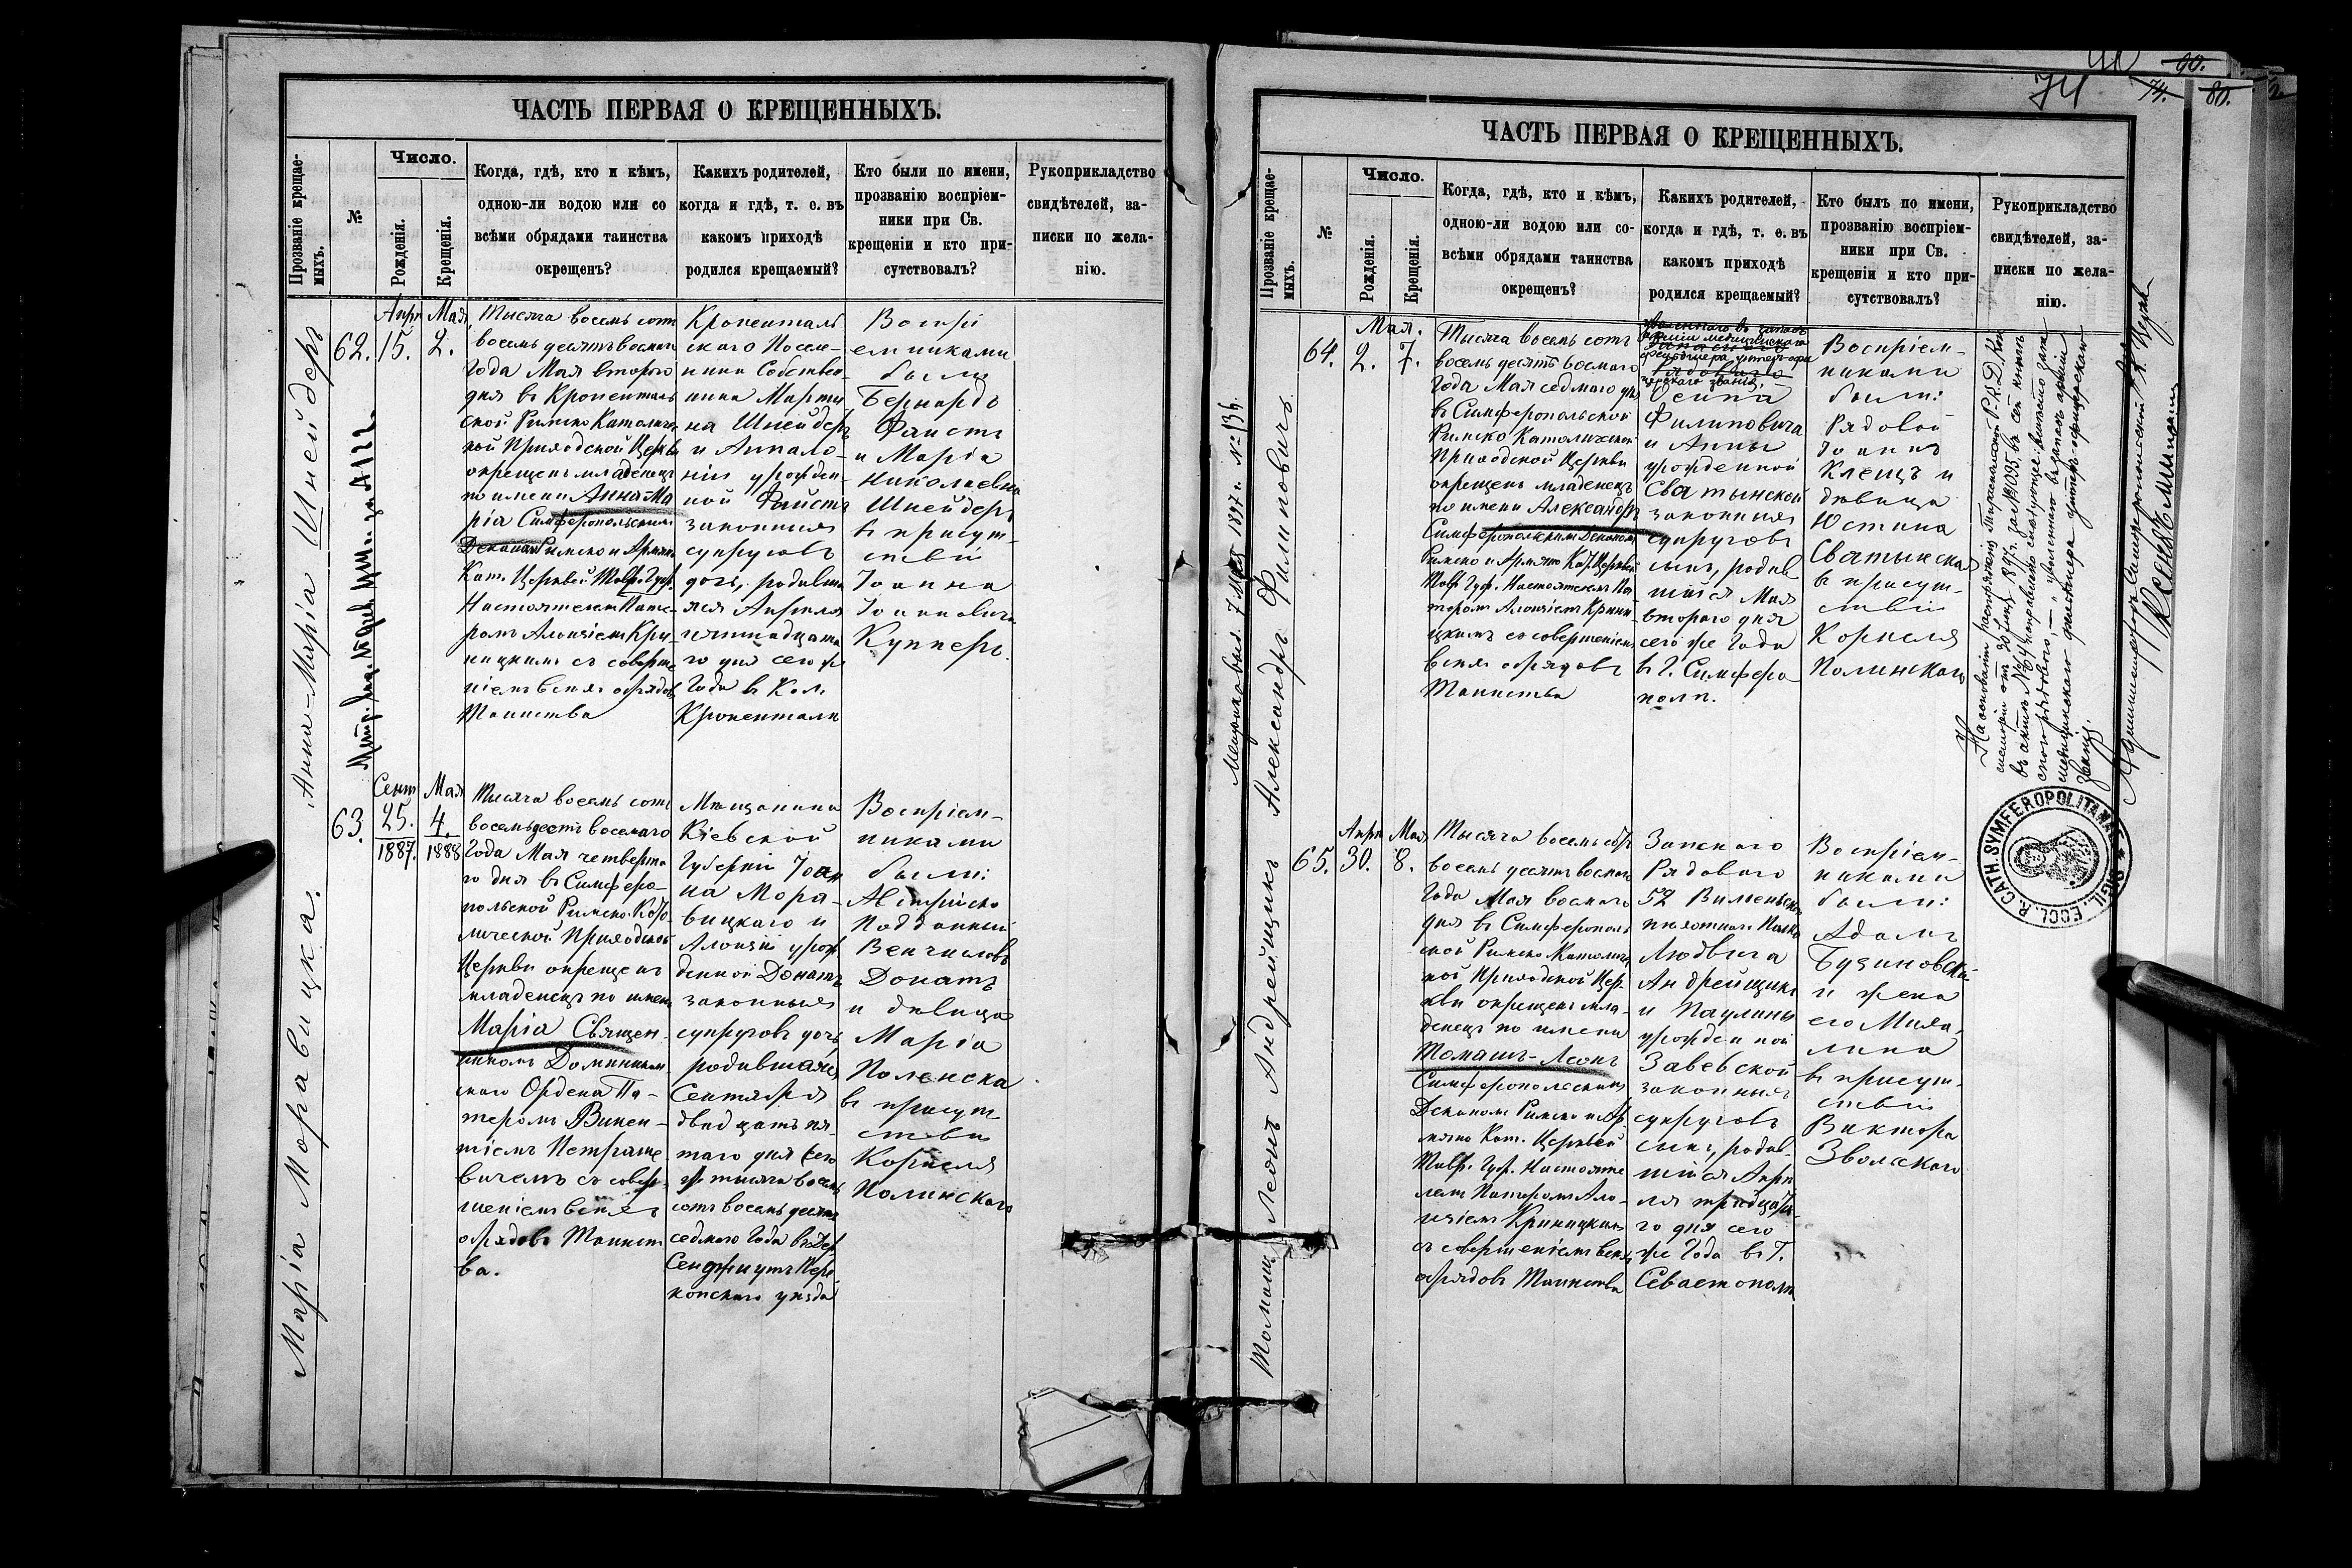 ЧАСТЬ ПЕРВАЯ О КРЕЩЕННЫХЪ.
Прозваніе крещае-
мыхъ.
№
Число.
Рожденія.
Крещенія.
Когда, гдѣ, кто и кѣмъ,
одною-ли водою или со
всѣми обрядами таинства
окрещенъ?
Какихъ родителей,
когда и гдѣ, т. е. въ
какомъ приходѣ
родился крещаемый?
Кто были по имени,
прозванію воспріем-
ники при Св.
крещеніи и кто при-
сутствовалъ?
Рукоприкладство
свидѣтелей, за-
писки по жела-
нію.
Анна-Марія Шнейдеръ
62.
Апр
15.
Мая
2.
Тысяча восемь сотъ
восемьдесятъ восмаго
года Мая втораго
дня въ Кроненталь
ской Римско Католиче
кой Приходской Церкви
окрещенъ младенецъ
по имени Анна Ма
рія Симферопольскимъ
Деканом Римско и Армяно
Кат. Церквей Тавр. Губ.
Настоятелемъ Пате-
ромъ Алоизіемъ Кри-
ницкимъ съ соверше
ніемъ всѣхъ обрядовъ
Таинства
Кроненталь
скаго Поселя-
нина Собствен-
ника Марти
на Шнейдеръ
и Аппало-
ніи урожден-
ной Фаистъ
законныхъ
супруговъ
дочь, родивша
яся Апрѣля
пятнадцата
го дня сего же
Года въ Кол.
Кроненталѣ
Воспрі
емниками
были
Бернардъ
Фаистъ
и Марія
Николаевна
Шнейдеръ
въ присут-
ствіи
Іоанна
Іоановича
Купперъ.
Марія Моравицка.
63.
Сент
25.
1887.
Мая
4.
1888
Тысяча восемь сотъ
восемьдесятъ восмаго
Года Мая четверта
го дня въ Симферо-
польской Римско Като-
лической Приходской
Церкви окрещенъ
младенецъ по имени
Марія Священ-
никомъ Доминикан
скаго Ордена Па-
теромъ Викен-
тіемъ Петраше
вичемъ съ совер-
шеніемъ всѣхъ
обрядовъ Таинст
ва.
Мѣщанина
Кіевской
Губерніи Іоан
на Мора-
вицкаго и
Алоизіи урож-
денной Донатъ
законныхъ
супруговъ дочь
родившаяся
Сентября
двадцать пя-
таго дня сего
же тысяча восемь
сотъ восемь десятъ
седмаго Года въ Дер.
Сенджутъ Пере-
копскаго уѣзда
Воспріем-
никами
были:
Австрійско
Подданный
Венчиславъ
Донатъ
и дѣвица
Марія
Поленска
въ присут
ствіи
Корнеля
Полинскаго
ЧАСТЬ ПЕРВАЯ О КРЕЩЕННЫХЪ.
74
74.
80.
90.
Прозваніе крещае-
мыхъ.
№
Число.
Рожденія.
Крещенія.
Когда, гдѣ, кто и кѣмъ,
одною-ли водою или со-
всѣми обрядами таинства
окрещенъ?
Какихъ родителей,
когда и гдѣ, т. е. въ
какомъ приходѣ
родился крещаемый?
Кто былъ по имени,
прозванію воспріем-
ники при Св.
крещеніи и кто при-
сутствовалъ?
Рукоприкладство
свидѣтелей, за-
писки по жела-
нію.
Александръ Филиповичъ.
64.
Мая.
2.
7.
Тысяча восемь сотъ
восемь десятъ восмаго
Года Мая седмаго дня
въ Симферопольской
Римско Католической
Приходской Церкви
окрещенъ младенецъ
по имени Александръ
Симферопольскимъ Деканомъ
Римско и Армяно Кат. Церквей
Тавр. Губ. Настоятелемъ Па
теромъ Алоизіемъ Крини
цкимъ съ совершеніемъ
всѣхъ обрядовъ
Таинства
уволеннаго въ запасъ
арміи медицинскаго
фельдшера унтеръ-офи
церскаго званія,
Осипа
Филиповича
и Анны
урожденной
Сватынской
законныхъ
супруговъ
сынъ, родив
шійся Мая
втораго дня
сего же Года
въ Г. Симферо
полѣ.
Воспріем-
никами
были:
Рядовой
Іоаннъ
Клещъ и
дѣвица
Юстина
Сватынска
въ присут-
ствіи
Корнеля
Полинскаго
ECCL. R. CATH. SYMFEROPOLITANA
Томашъ Леонъ Андрейщикъ
65.
Апр
30.
Мая
8.
Тысяча восемь сотъ
восемь десятъ восмаго
Года Мая восмаго
дня въ Симферополь
ской Римско Католиче
кой Приходской Цер-
кви окрещенъ мла-
денецъ по имени
Томашъ-Леонъ
Симферопольскимъ
Деканомъ Римско и Ар
мяно Кат. Церквей
Тавр. Губ. Настояте
лемъ Патеромъ Ало-
изіемъ Криницкимъ
съ совершеніемъ всѣхъ
обрядовъ Таинства
Запаснаго
Рядоваго
52 Виленскаго
пѣхотнаго Полка
Людвига
Андрейщикъ
и Паулины
урожденной
Завевской
законныхъ
супруговъ
сынъ, родив-
шійся Апрѣ
ля тридцата-
го дня сего
же Года въ Г.
Севастополѣ
Воспріем-
никами
были:
Адамъ
Бузиновскій
и жена
его Миха-
лина
въ присут-
ствіи
Виктора
Звольскаго